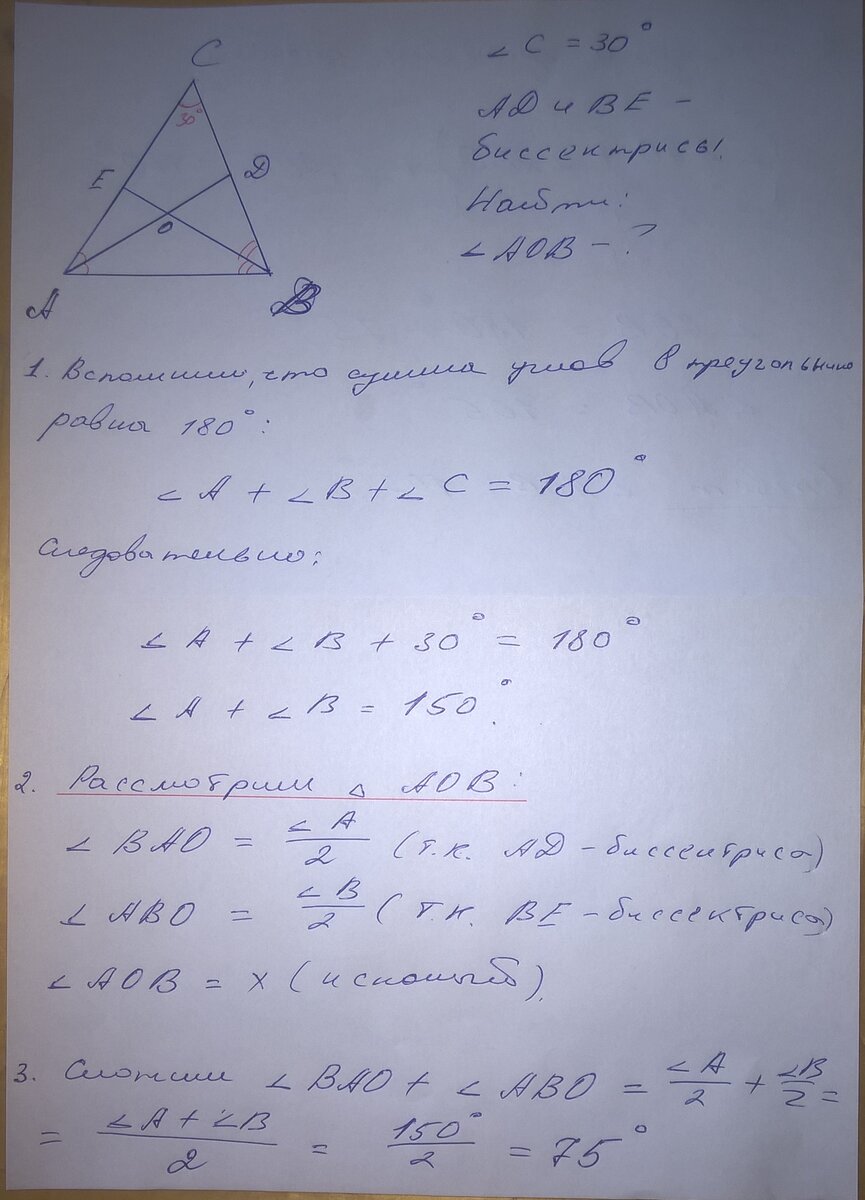 C
∠ C = 30°
30°
AD и BE –
биссектрисы.
E
D
O
Найти:
∠ AOB – ?
A
B
1. Вспомним, что сумма углов в треугольнике
равна 180°:
∠ A + ∠ B + ∠ C = 180°
Следовательно:
∠ A + ∠ B + 30° = 180°
∠ A + ∠ B = 150°.
2. Рассмотрим △ AOB:
∠ BAO = ∠A/2 (т.к. AD – биссектриса)
∠ ABO = ∠B/2 (т.к. BE – биссектриса)
∠ AOB = x (искомый).
3. Сложим ∠ BAO + ∠ ABO = ∠A/2 + ∠B/2 =
= (∠A + ∠B)/2 = 150°/2 = 75°